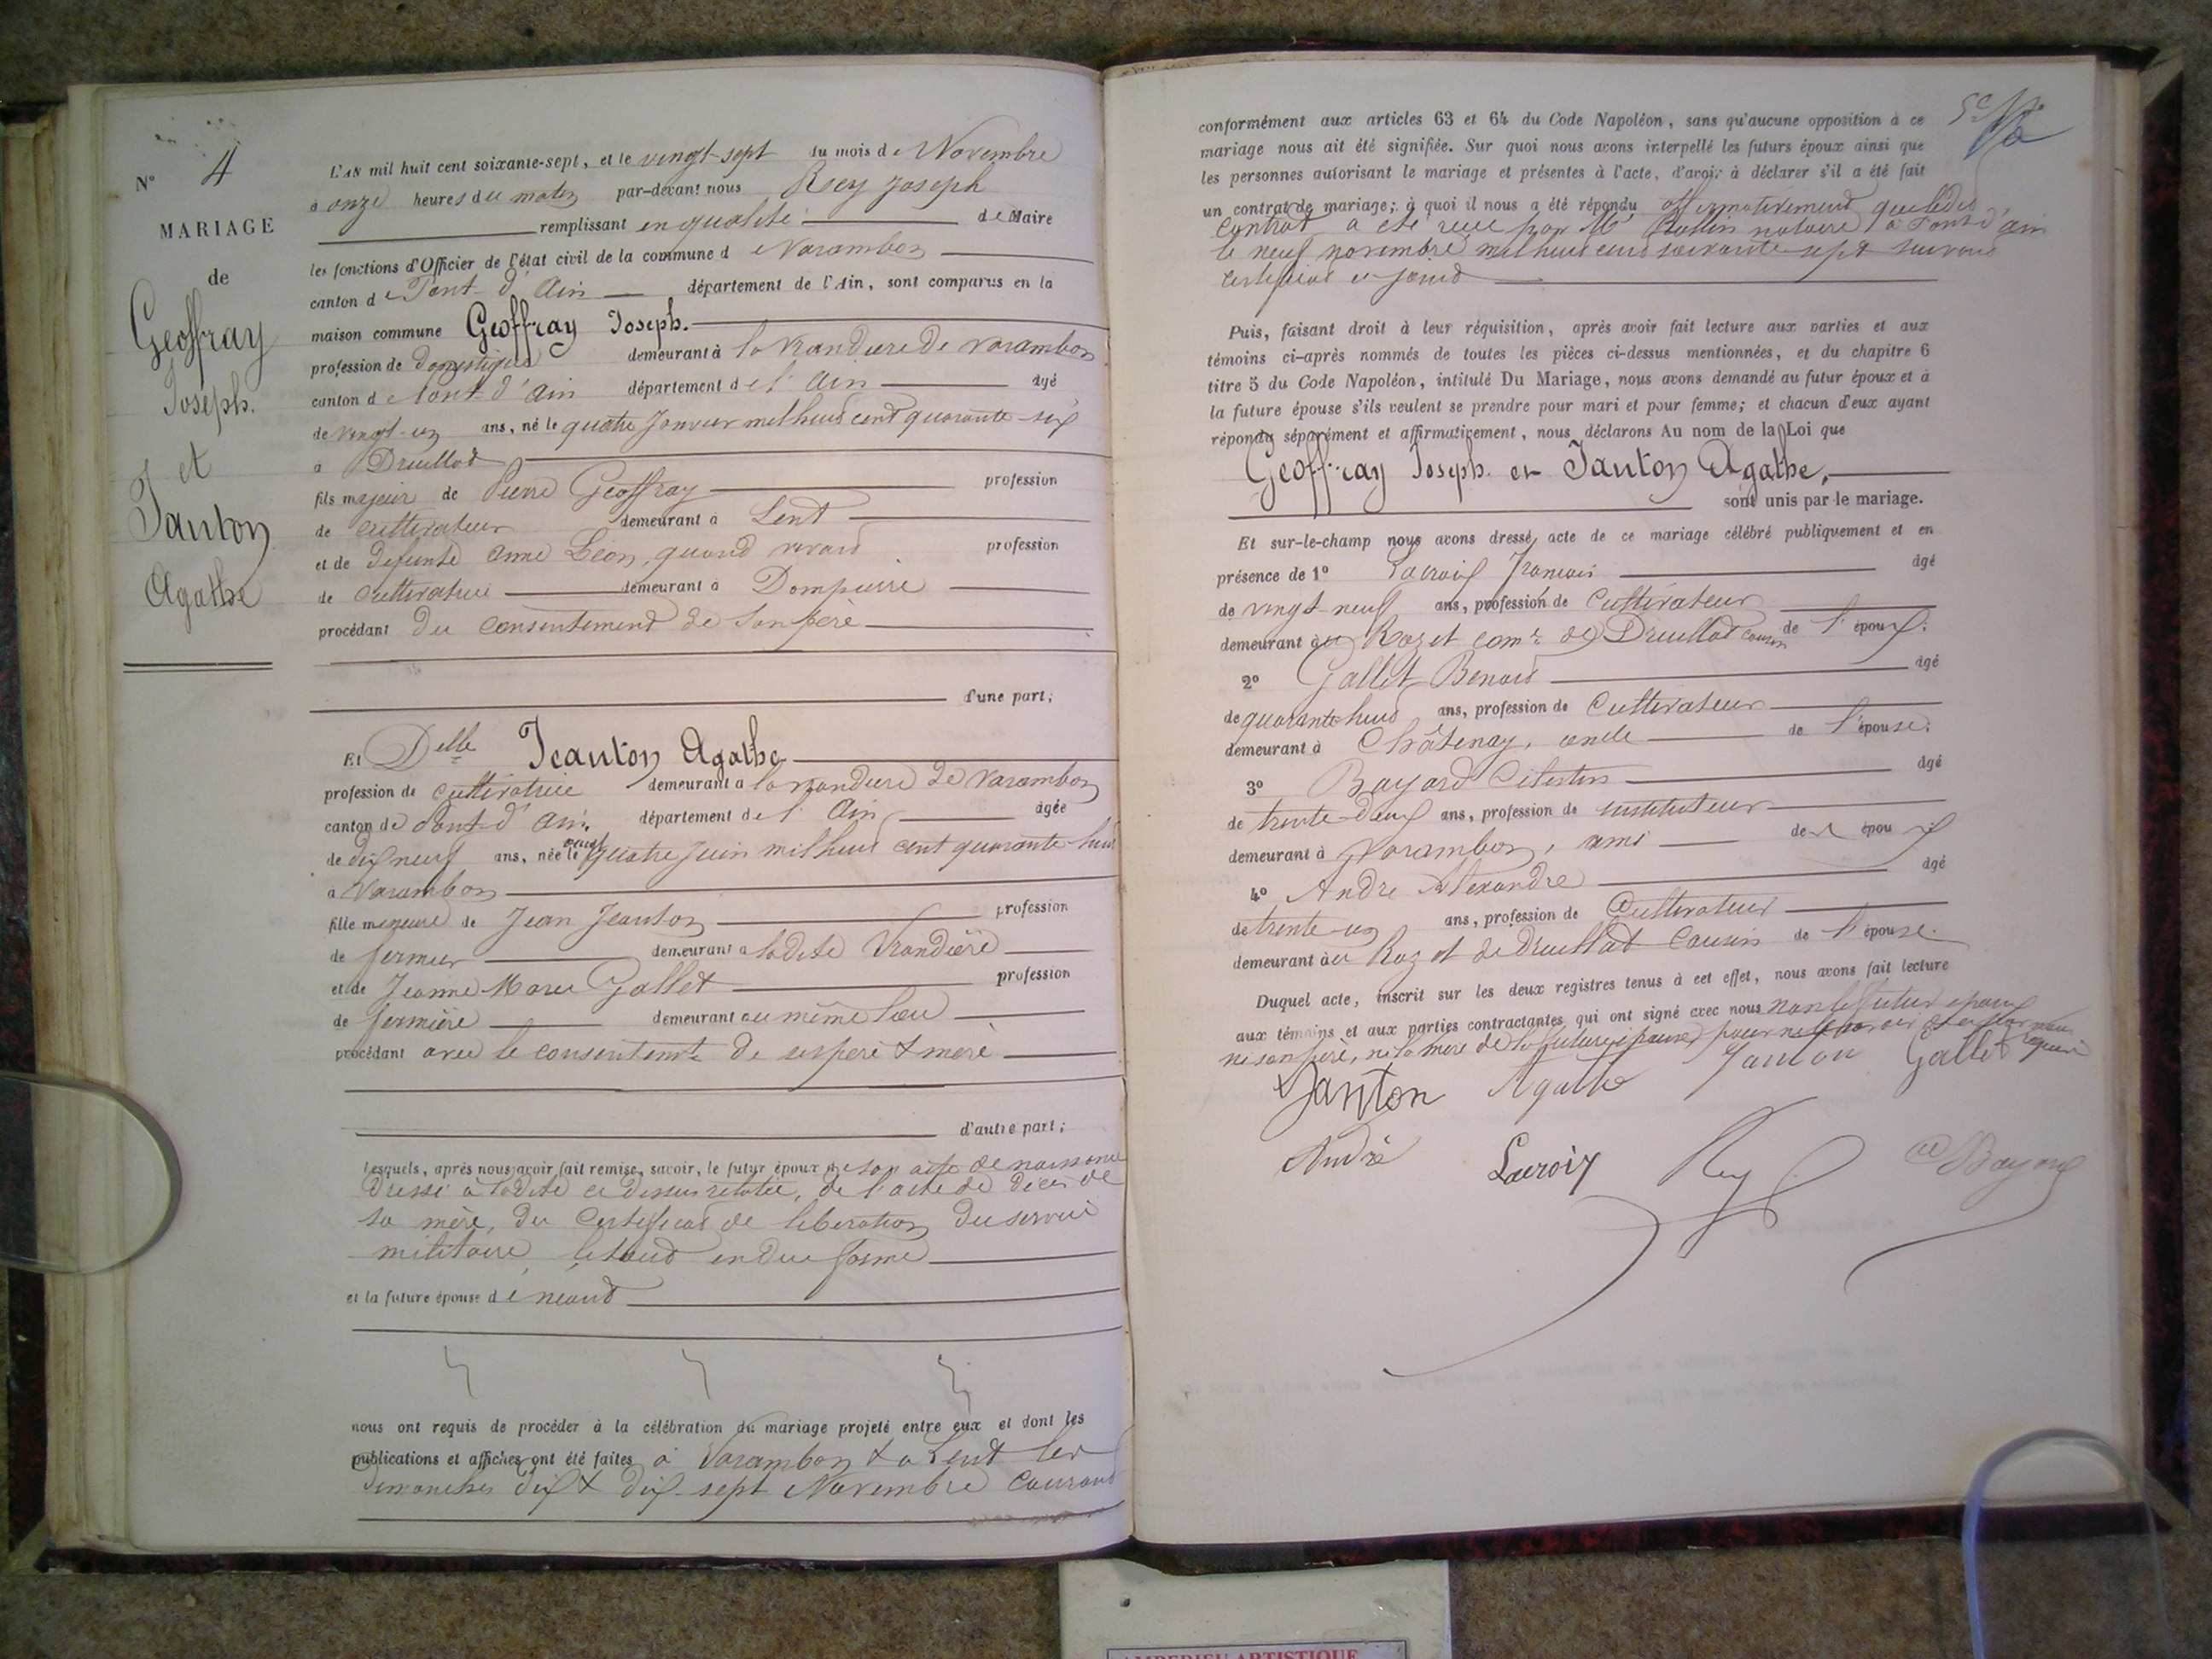 N° 4
MARIAGE
de
Geoffray
Joseph.
et
Janton
Agathe
L'AN mil huit cent soixante-sept, et le vingt-sept du mois de Novembre
à onze heures du matin par-devant nous Rey Joseph
remplissant en qualité de Maire
les fonctions d'Officier de l'état civil de la commune de Varambon
canton de Pont-d'Ain département de l'Ain, sont comparus en la
maison commune Geoffray Joseph.
profession de domestique demeurant à la de Varambon
canton de Pont-d'ain département de l'Ain âgé
de vingt-un ans, né le quatre Janvier mil huit cent quarante-six
à Druillat
fils majeur de Pierre Geoffray profession
de cultivateur demeurant à Lent
et de defunte Anne Léon, quand vivait profession
de cultivatrice demeurant à Dompierre
procédant du consentement de son père
d'une part;
Et Delle Jeanton Agathe
profession de cultivatrice demeurant à la de Varambon
canton de Pont-d'ain département de l'Ain âgée
de dix neuf ans, née le quatre juin mil huit cent quarante-huit
à Varambon
fille mineure de Jean Jeanton profession
de fermier demeurant à ladite
et de Jeanne Marie Gallet profession
de fermière demeurant au même lieu
procédant avec le consentemt de ses père & mère
d'autre part;
Lesquels, après nous avoir fait remise, savoir, le futur époux de son acte de naissance
dressé à la date ci dessus relatée, de l'acte de décès de
sa mère, du certificat de libération du service
militaire, le tout en due forme
et la future épouse de néant
nous ont requis de procéder à la célébration du mariage projeté entre eux et dont les
publications et affiches ont été faites à Varambon & à Lent les
dimanches dix & dix-sept Novembre courant
conformément aux articles 63 et 64 du Code Napoléon, sans qu'aucune opposition à ce
mariage nous ait été signifiée. Sur quoi nous avons interpellé les futurs époux ainsi que
les personnes autorisant le mariage et présentes à l'acte, d'avoir à déclarer s'il a été fait
un contrat de mariage; à quoi il nous a été répondu affirmativement que ledit
contrat a été reçu par Me notaire à Pont-d'ain
le neuf novembre mil huit cent soixante sept suivant
certificat ci joint
Puis, faisant droit à leur réquisition, après avoir fait lecture aux parties et aux
témoins ci-après nommés de toutes les pièces ci-dessus mentionnées, et du chapitre 6
titre 5 du Code Napoléon, intitulé Du Mariage, nous avons demandé au futur époux et à
la future épouse s'ils veulent se prendre pour mari et pour femme; et chacun d'eux ayant
répondu séparément et affirmativement, nous déclarons Au nom de la Loi que
Geoffray Joseph. et Janton Agathe,
sont unis par le mariage.
Et sur-le-champ nous avons dressé acte de ce mariage célébré publiquement et en
présence de 1° Lacroix François âgé
de vingt-neuf ans, profession de Cultivateur
demeurant au Rozet come de Druillat cousin de l'époux.
2° Gallet Benoit âgé
de quarante-huit ans, profession de Cultivateur
demeurant à Châtenay, oncle de l'épouse.
3° Bayard Célestin âgé
de trente-deux ans, profession de instituteur
demeurant à Varambon, ami de l'époux
4° André Alexandre âgé
de trente-un ans, profession de Cultivateur
demeurant au Rozet de Druillat Cousin de l'épouse.
Duquel acte, inscrit sur les deux registres tenus à cet effet, nous avons fait lecture
aux témoins et aux parties contractantes qui ont signé avec nous non le futur époux
ni son père, ni la mère de la future épouse, pour ne le savoir
requis
Janton Agathe Janton Gallet
André Lacroix Rey Bayard
AMBERIEU ARTISTIQUE